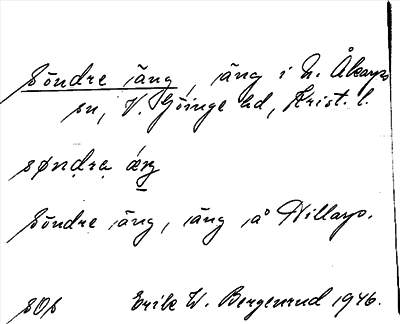 Söndre äng, äng i N. Åkarps
sn, V. Göinge hd, Krist. l.
søndra æŋ
Söndre äng, äng på Hillarp.
sOs Erik W. Bergenrud 1946.